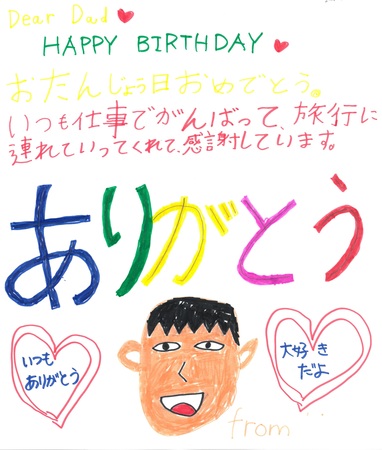 Dear Dad♥
HAPPY BIRTHDAY ♥
おたんじょう日おめでとう。
いつも仕事でがんばって、旅行に
連れていってくれて、感謝しています。
ありがとう
いつも
ありがとう
大好き
だよ
from